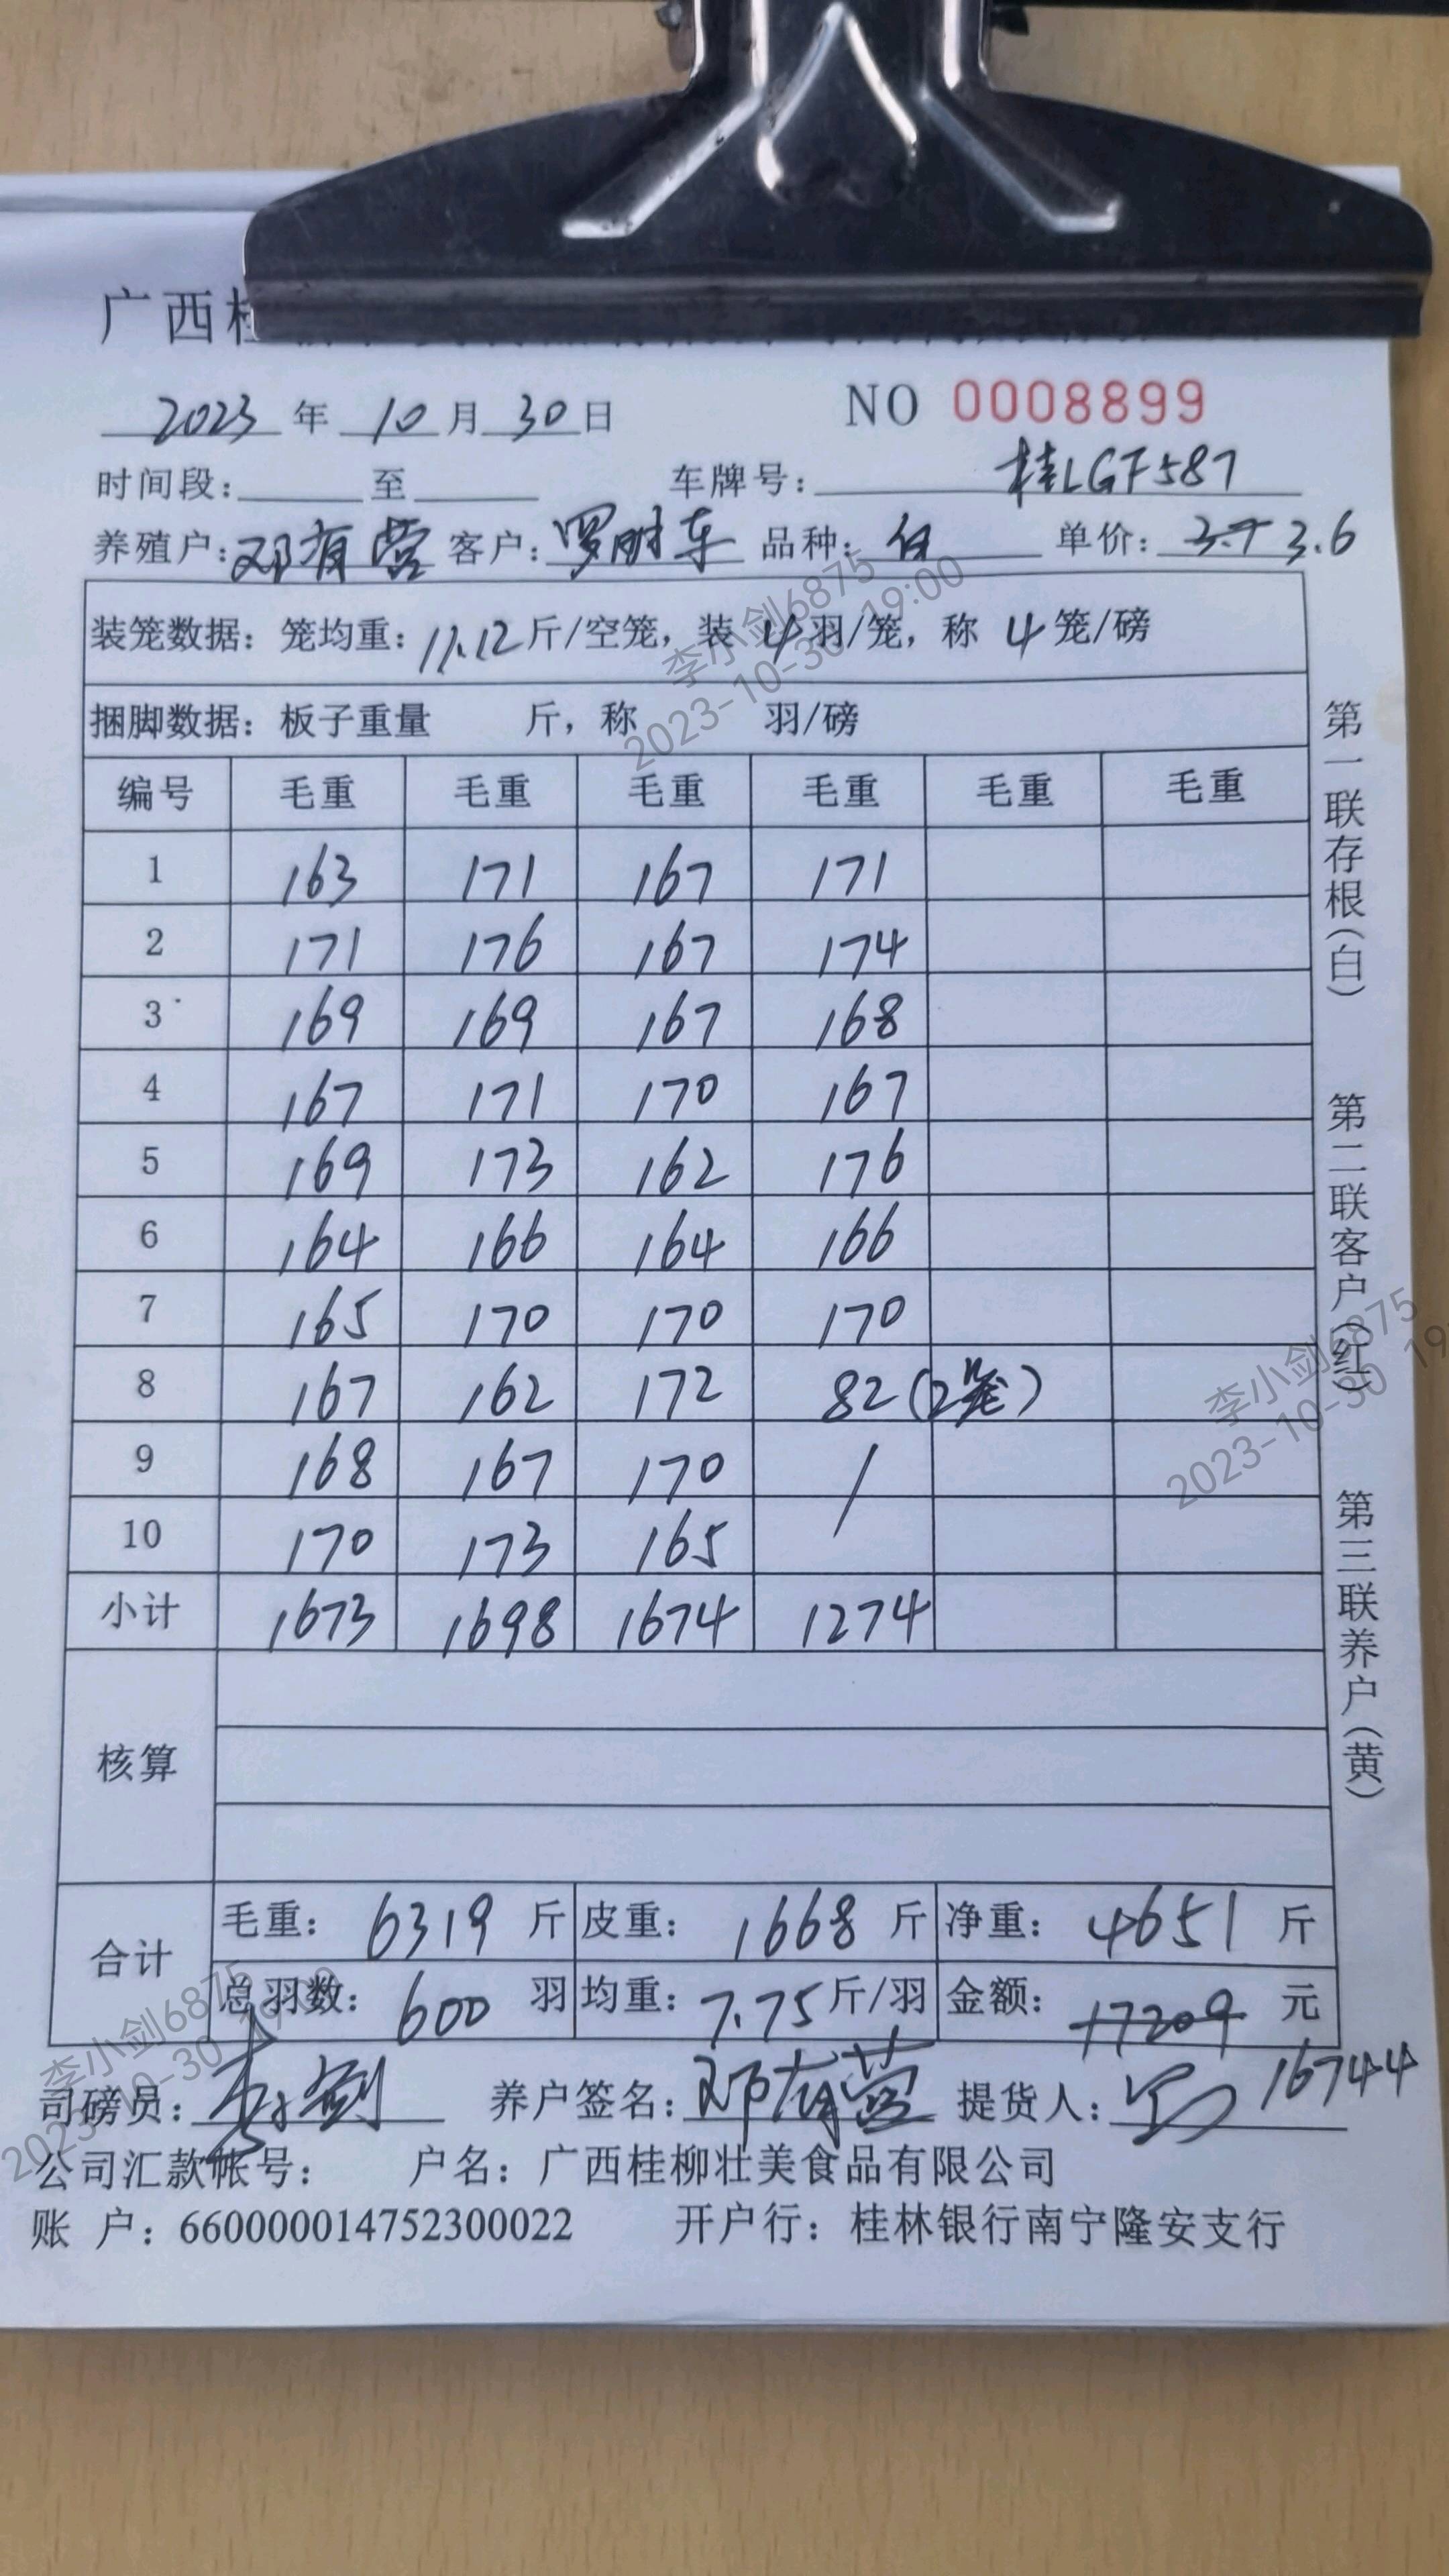 广西桂
2023 年 10 月 30 日 NO 0008899
时间段: 至 车牌号: 桂LGF587
养殖户: 邓有营 客户: 罗时车 品种: 白 单价: 3.7 3.6
装笼数据: 笼均重: 11.12 斤/空笼, 装 4 羽/笼, 称 4 笼/磅
捆脚数据: 板子重量 斤, 称 羽/磅
编号 毛重 毛重 毛重 毛重 毛重 毛重
1 163 171 167 171
2 171 176 167 174
3 169 169 167 168
4 167 171 170 167
5 169 173 162 176
6 164 166 164 166
7 165 170 170 170
8 167 162 172 82 (2笼)
9 168 167 170 /
10 170 173 165
小计 1673 1698 1674 1274
核算
合计
毛重: 6319 斤 皮重: 1668 斤 净重: 4651 斤
总羽数: 600 羽 均重: 7.75 斤/羽 金额: 17209 元
16744
司磅员: 李小剑 养户签名: 邓有营 提货人:
公司汇款帐号: 户名: 广西桂柳壮美食品有限公司
账 户: 660000014752300022 开户行: 桂林银行南宁隆安支行
第一联存根(白) 第二联客户(红) 第三联养户(黄)
李小剑6875
2023-10-30 19:00
李小剑6875
2023-10-30 19
李小剑6875
2023-10-30 19:00